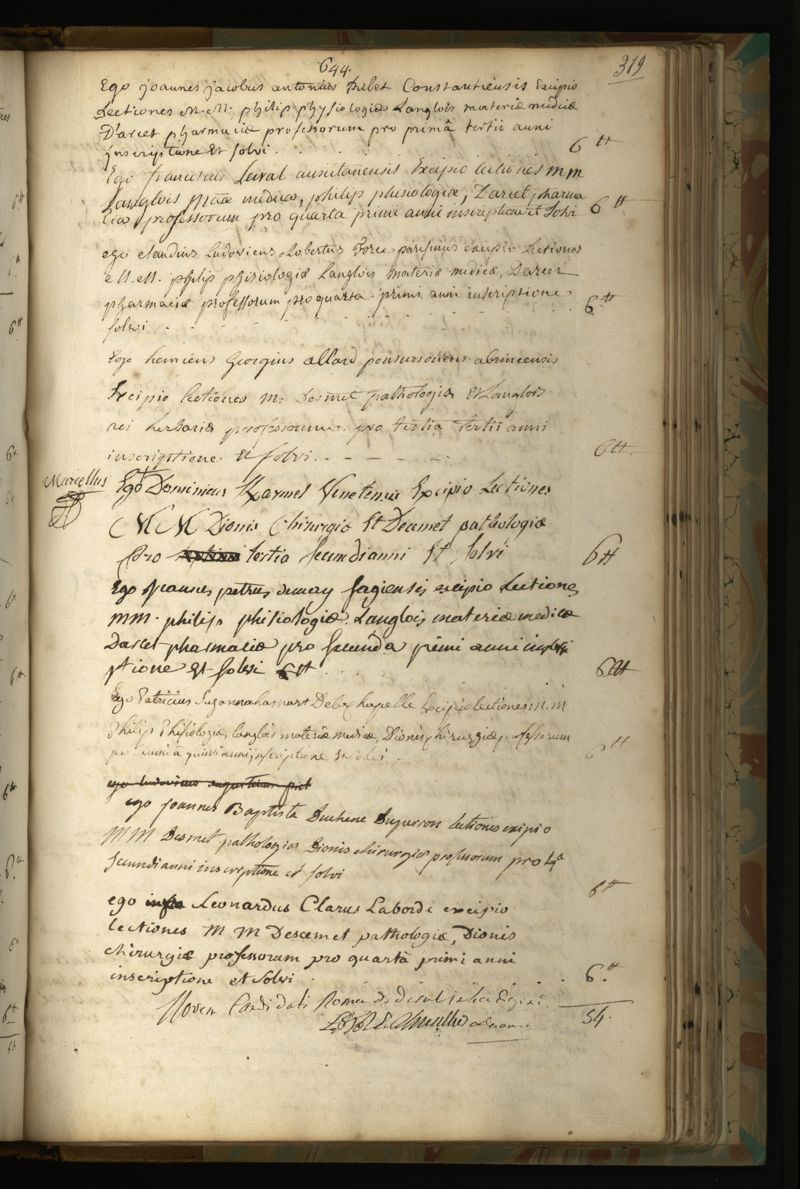 644.
319
Ego joannes jacobus antonius Constantiensis Excipio
Lectiones M.M. philip physiologiæ Langlois materiæ medicæ
Darcet pharmaciæ professorum pro primâ tertii anni
inscriptione Et solvi . . . . . 6 ₶
Ego franciscus Excipio lectiones m m
Langlois medicæ, philip phisiologiæ, Darcet pharma
ciæ professorum pro quarta primi anni inscriptione et solvi 6 ₶
ego claudius Ludovicus Robertus parisinus excipio Lectiones
M.M. philip phisiologiæ Langlois materiæ medicæ, Darcet
pharmaciæ professorum pro quarta primi anni inscriptione
solvi . . . . . 6 ₶
Ego henricus Georgius allard abrincensis
Excipio lectiones m. Desmet pathologiæ Et Langlois
rei herbariæ professorum pro tertia tertii anni
inscriptione et solvi. - - - - 6 ₶
Marcellus
Ego Dominicus Venetensis Excipio Lectiones
MM Dionis Chirurgiæ Et Decemet pathologiæ
Pro tertia secundi anni Et solvi 6 ₶
Ego petrus sagiensis excipio Lectiones
mm. philip phisiologiæ Langlois materiæ medicæ
Darcet pharmaciæ pro secunda primi anni inscri
ptione Et solvi 6 ₶ . . . 6 ₶
Ego Patricius Excipio lectiones m.m
Philip Phisiologiæ, langlois materiæ medicæ, Dionis chirurgiæ professorum
anni inscriptione Et solvi . 6 ₶
ego ludovicus
ego joannes Baptista Duchene lectiones excipio
MM Desmet pathologiæ Dionis chirurgiæ professorum pro 4ª
secundi anni inscriptione et solvi
6 ₶
ego Leonardus Clarus Laborde excipio
lectiones M M Descemet pathologiæ, Dionis
chirurgiæ professorum pro quartâ primi anni
inscriptione et solvi . . . . 6 ₶
Novem Candidati
54.